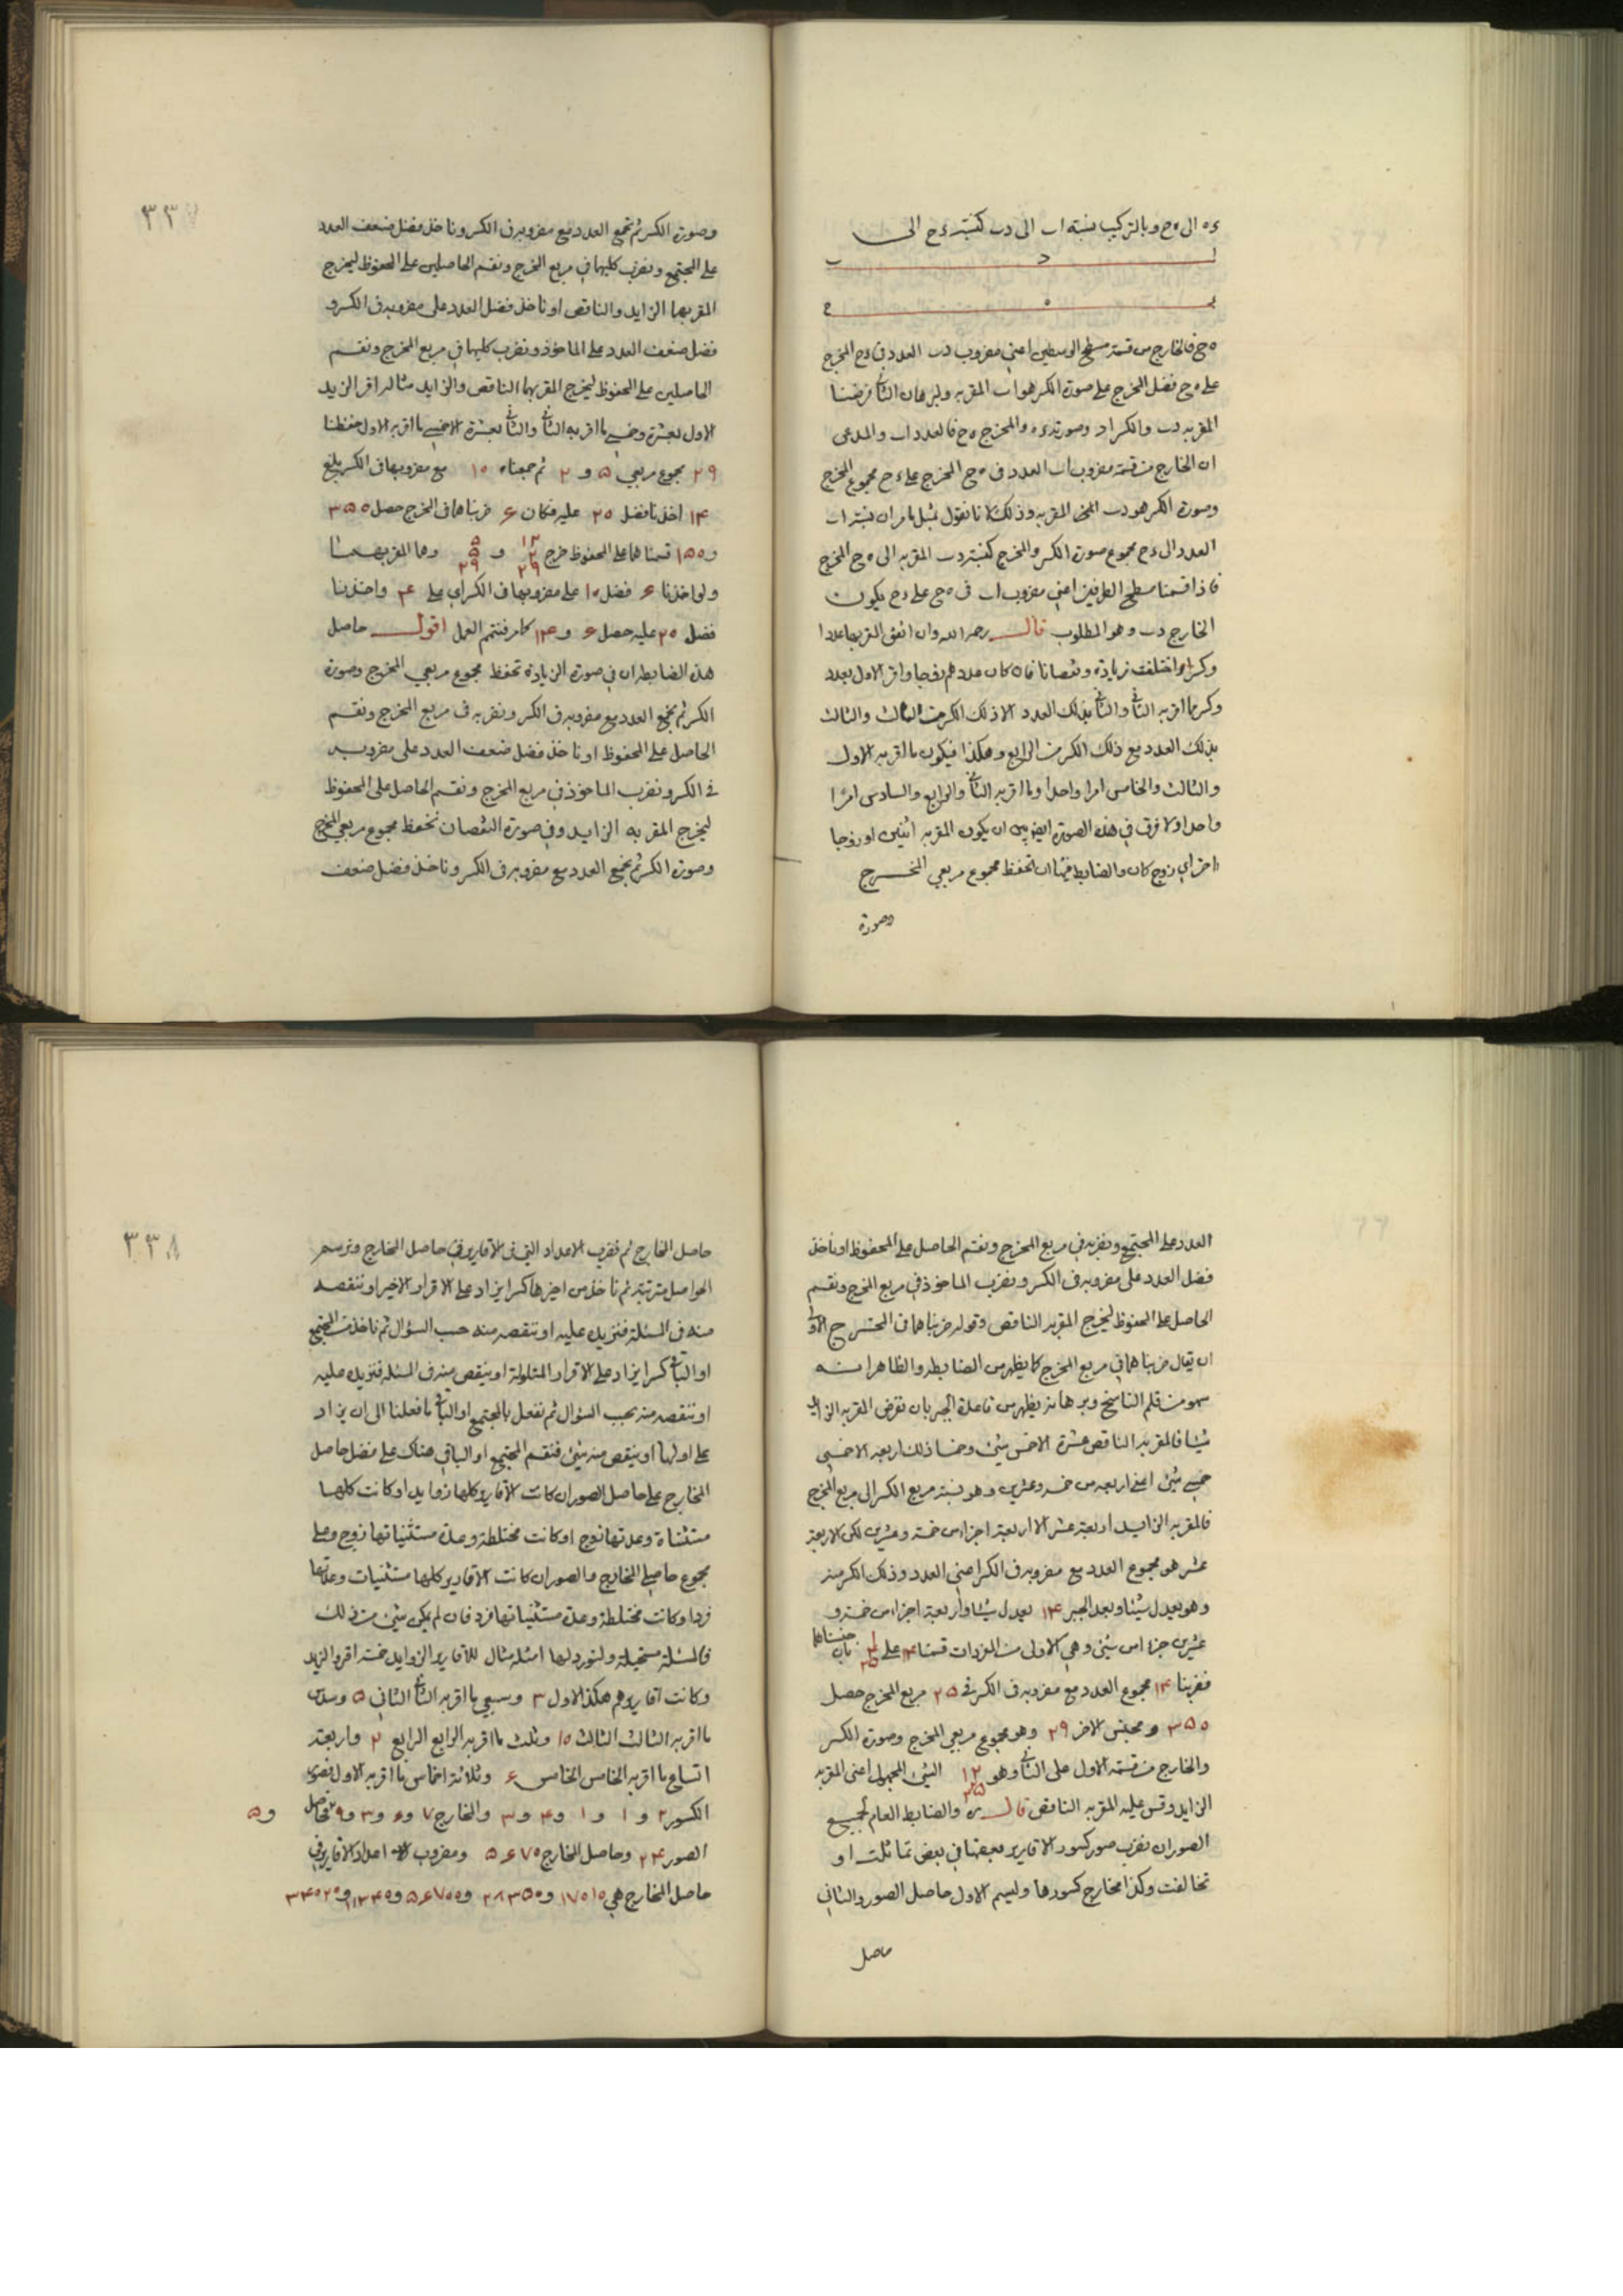 ءه الى ه ح وبالتركيب نسبة اب الى دب كنسبة ءح الى
ا د ب
ء ه ح
ه ح فالخارج من قسمة مسطح الوسطين اعني مضروب دب العدد في ءح المخرج
على ه ح فضل المخرج على صورة الكسر هو اب المقر به ولبرهان الثاني فرضنا
المقر به دب والكسر اد وصورته ءه والمخرج ه ح فالعدد اب والمدعى
ان الخارج من قسمة مضروب اب العدد في ه ح المخرج على ءح مجموع المخرج
وصورة الكسر هو دب المقر به وذلك لانا نقول بمثل ما مر ان نسبة اب
العدد الى ءح مجموع صورة الكسر والمخرج كنسبة دب المقر به الى ه ح المخرج
فاذا قسمنا مسطح الطرفين اعني مضروب اب في ه ح على ءح يكون
الخارج دب وهو المطلوب قال رحمه الله وان اتفق المقر بها عددا
وكسرا واختلفت زيادة ونقصانا فان كان عددهم زوجا واقر الاول بعدد
وكسر مما اقر به الثاني والثاني بذلك العدد الا ذلك الكسر من الثالث والثالث
بذلك العدد مع ذلك الكسر من الرابع وهكذا فيكون ما اقر به الاول
والثالث والخامس امرا واحدا وما اقر به الثاني والرابع والسادس امرا
واحدا ولا فرق في هذه الصورة ايضا بين ان يكون المقر به اثنين او زوجا
اخر اي زوج كان والضابط فيها ان تحفظ مجموع مربعي المخرج
وصورة
٣٣٧
وصورة الكسر ثم تجمع العدد مع مضروبه في الكسر وناخذ فضل ضعف العدد
على المجتمع ونضرب كليهما في مربع المخرج ونقسم الحاصلين على المحفوظ ليخرج
المقر بهما الزايد والناقص او ناخذ فضل العدد على مضروبه في الكسر و
فضل ضعف العدد على الماخوذ ونضرب كليهما في مربع المخرج ونقسم
الحاصلين على المحفوظ ليخرج المقر بهما الناقص والزايد مثاله اقر الزيد
الاول بعشرة وخمسي ما اقر به الثاني والثاني بعشرة الا خمسي ما اقر به الاول حفظنا
٢٩ مجموع مربعي ۵ و ٢ ثم جمعناه ١٠ مع مضروبها في الكسر بلغ
١۴ اخذنا فضل ٢٠ عليه فكان ۶ ضربناهما في المخرج حصل ٣۵٠
و ١۵٠ قسمناهما على المحفوظ خرج ١٢ ٢ ٢٩ و ۵ ۵ ٢٩ وهما المقر بهما
ولو اخذنا ۶ فضل ١٠ على مضروبها في الكسر اي على ۴ واخذنا
فضل ٢٠ عليه حصل ۶ و ١۴ كما مر فنتم العمل اقول حاصل
هذه الضابطة ان في صورة الزيادة تحفظ مجموع مربعي المخرج وصورة
الكسر ثم نجمع العدد مع مضروبه في الكسر ونضربه في مربع المخرج ونقسم
الحاصل على المحفوظ او ناخذ فضل ضعف العدد على مضروبه
في الكسر ونضرب الماخوذ في مربع المخرج ونقسم الحاصل على المحفوظ
ليخرج المقر به الزايد وفي صورة النقصان نحفظ مجموع مربعي المخرج
وصورة الكسر ثم نجمع العدد مع مضروبه في الكسر وناخذ فضل ضعف
العدد على المجتمع ونضربه في مربع المخرج ونقسم الحاصل على المحفوظ او ناخذ
فضل العدد على مضروبه في الكسر ونضرب الماخوذ في مربع المخرج ونقسم
الحاصل على المحفوظ ليخرج المقر به الناقص وقوله ضربناهما في المخرج الاولى
ان يقال ضربناهما في مربع المخرج كما يظهر من الضابطة والظاهر انه
سهو من قلم الناسخ وبرهانه يظهر من قاعدة الجبر بان نفرض المقر به الزايد
شيئا فالمقر به الناقص عشرة الا خمسي شيئ وخمسا ذلك اربعة الا خمسي
خمسي شيئ اعني اربعة من خمسة وعشرين وهو نسبة مربع الكسر الى مربع المخرج
فالمقر به الزايد اربعة عشر الا اربعة اجزاء من خمسة وعشرين لكن الاربعة
عشر هو مجموع العدد مع مضروبه في الكسر اعني العدد وذلك الكسر منه
وهو يعدل شيئا وبعد الجبر ١۴ يعدل شيئا واربعة اجزاء من خمسة و
عشرين جزءا من شيئ وهي الاولى من المفردات قسمنا ١۴ على ١ ۴ ٢۵ بان جنسناهما
فضربنا ١۴ مجموع العدد مع مضروبه في الكسر في ٢۵ مربع المخرج حصل
٣۵٠ ومجنس الاخر ٢٩ وهو مجموع مربعي المخرج وصورة الكسر
والخارج من قسمة الاول على الثاني وهو ١٢ الشيئ المجهول اعني المقر به
الزايد وقس عليه المقر به الناقص قال ره والضابط العام لجميع
الصور ان نضرب صور كسور الاقارير بعضها في بعض تماثلت او
تخالفت وكذا مخارج كسورها ونسم الاول حاصل الصور والثاني
حاصل
٣٣٨
حاصل المخارج ثم نضرب الاعداد التي في الاقارير في حاصل المخارج ونرسم
الحواصل مترتبة ثم ناخذ من اخيرها كسرا يزاد على الاقرار الاخير او ننقصه
منه في المسئلة فنزيده عليه او ننقصه منه حسب السؤال ثم ناخذ من المجتمع
او الباقي كسرا يزاد على الاقرار المتلو له او ينقص منه في المسئلة فنزيده عليه
او ننقصه منه بحسب السؤال ثم نفعل بالمجتمع او الباقي ما فعلنا الى ان يزاد
على اولها او ينقص منه شيئ فنقسم المجتمع او الباقي هناك على فضل حاصل
المخارج على حاصل الصور ان كانت الاقارير كلها زوايد او كانت كلها
مستثناة وعدتها زوج او كانت مختلطة وعدة مستثنياتها زوج وعلى
مجموع حاصلي المخارج والصور ان كانت الاقارير كلها مستثنيات وعدتها
فردا وكانت مختلطة وعدة مستثنياتها فرد فان لم يكن شيئ من ذلك
فالمسئلة مستحيلة ولنورد لها امثلة مثال للاقارير الزوايد خمسة اقروا الزيد
وكانت اقاريرهم هكذا الاول ٣ وسبعي ما اقر به الثاني الثاني ۵ وسدس
ما اقر به الثالث الثالث ١٠ وثلث ما اقر به الرابع الرابع ٢ واربعة
اتساع ما اقر به الخامس الخامس ۶ وثلاثة اخماس ما اقر به الاول فصور
الكسور ٢ و ١ و ١ و ۴ و ٣ والمخارج ٧ و ۶ و ٣ و ٩ و ۵ فحاصل
الصور ٢۴ وحاصل المخارج ۵۶٧٠ ومضروب اعداد الاقارير في
حاصل المخارج هي ١٧٠١٠ و ٢٨٣۵٠ و ۵۶٧٠٠ و ١١٣۴٠ و ٣۴٠٢٠